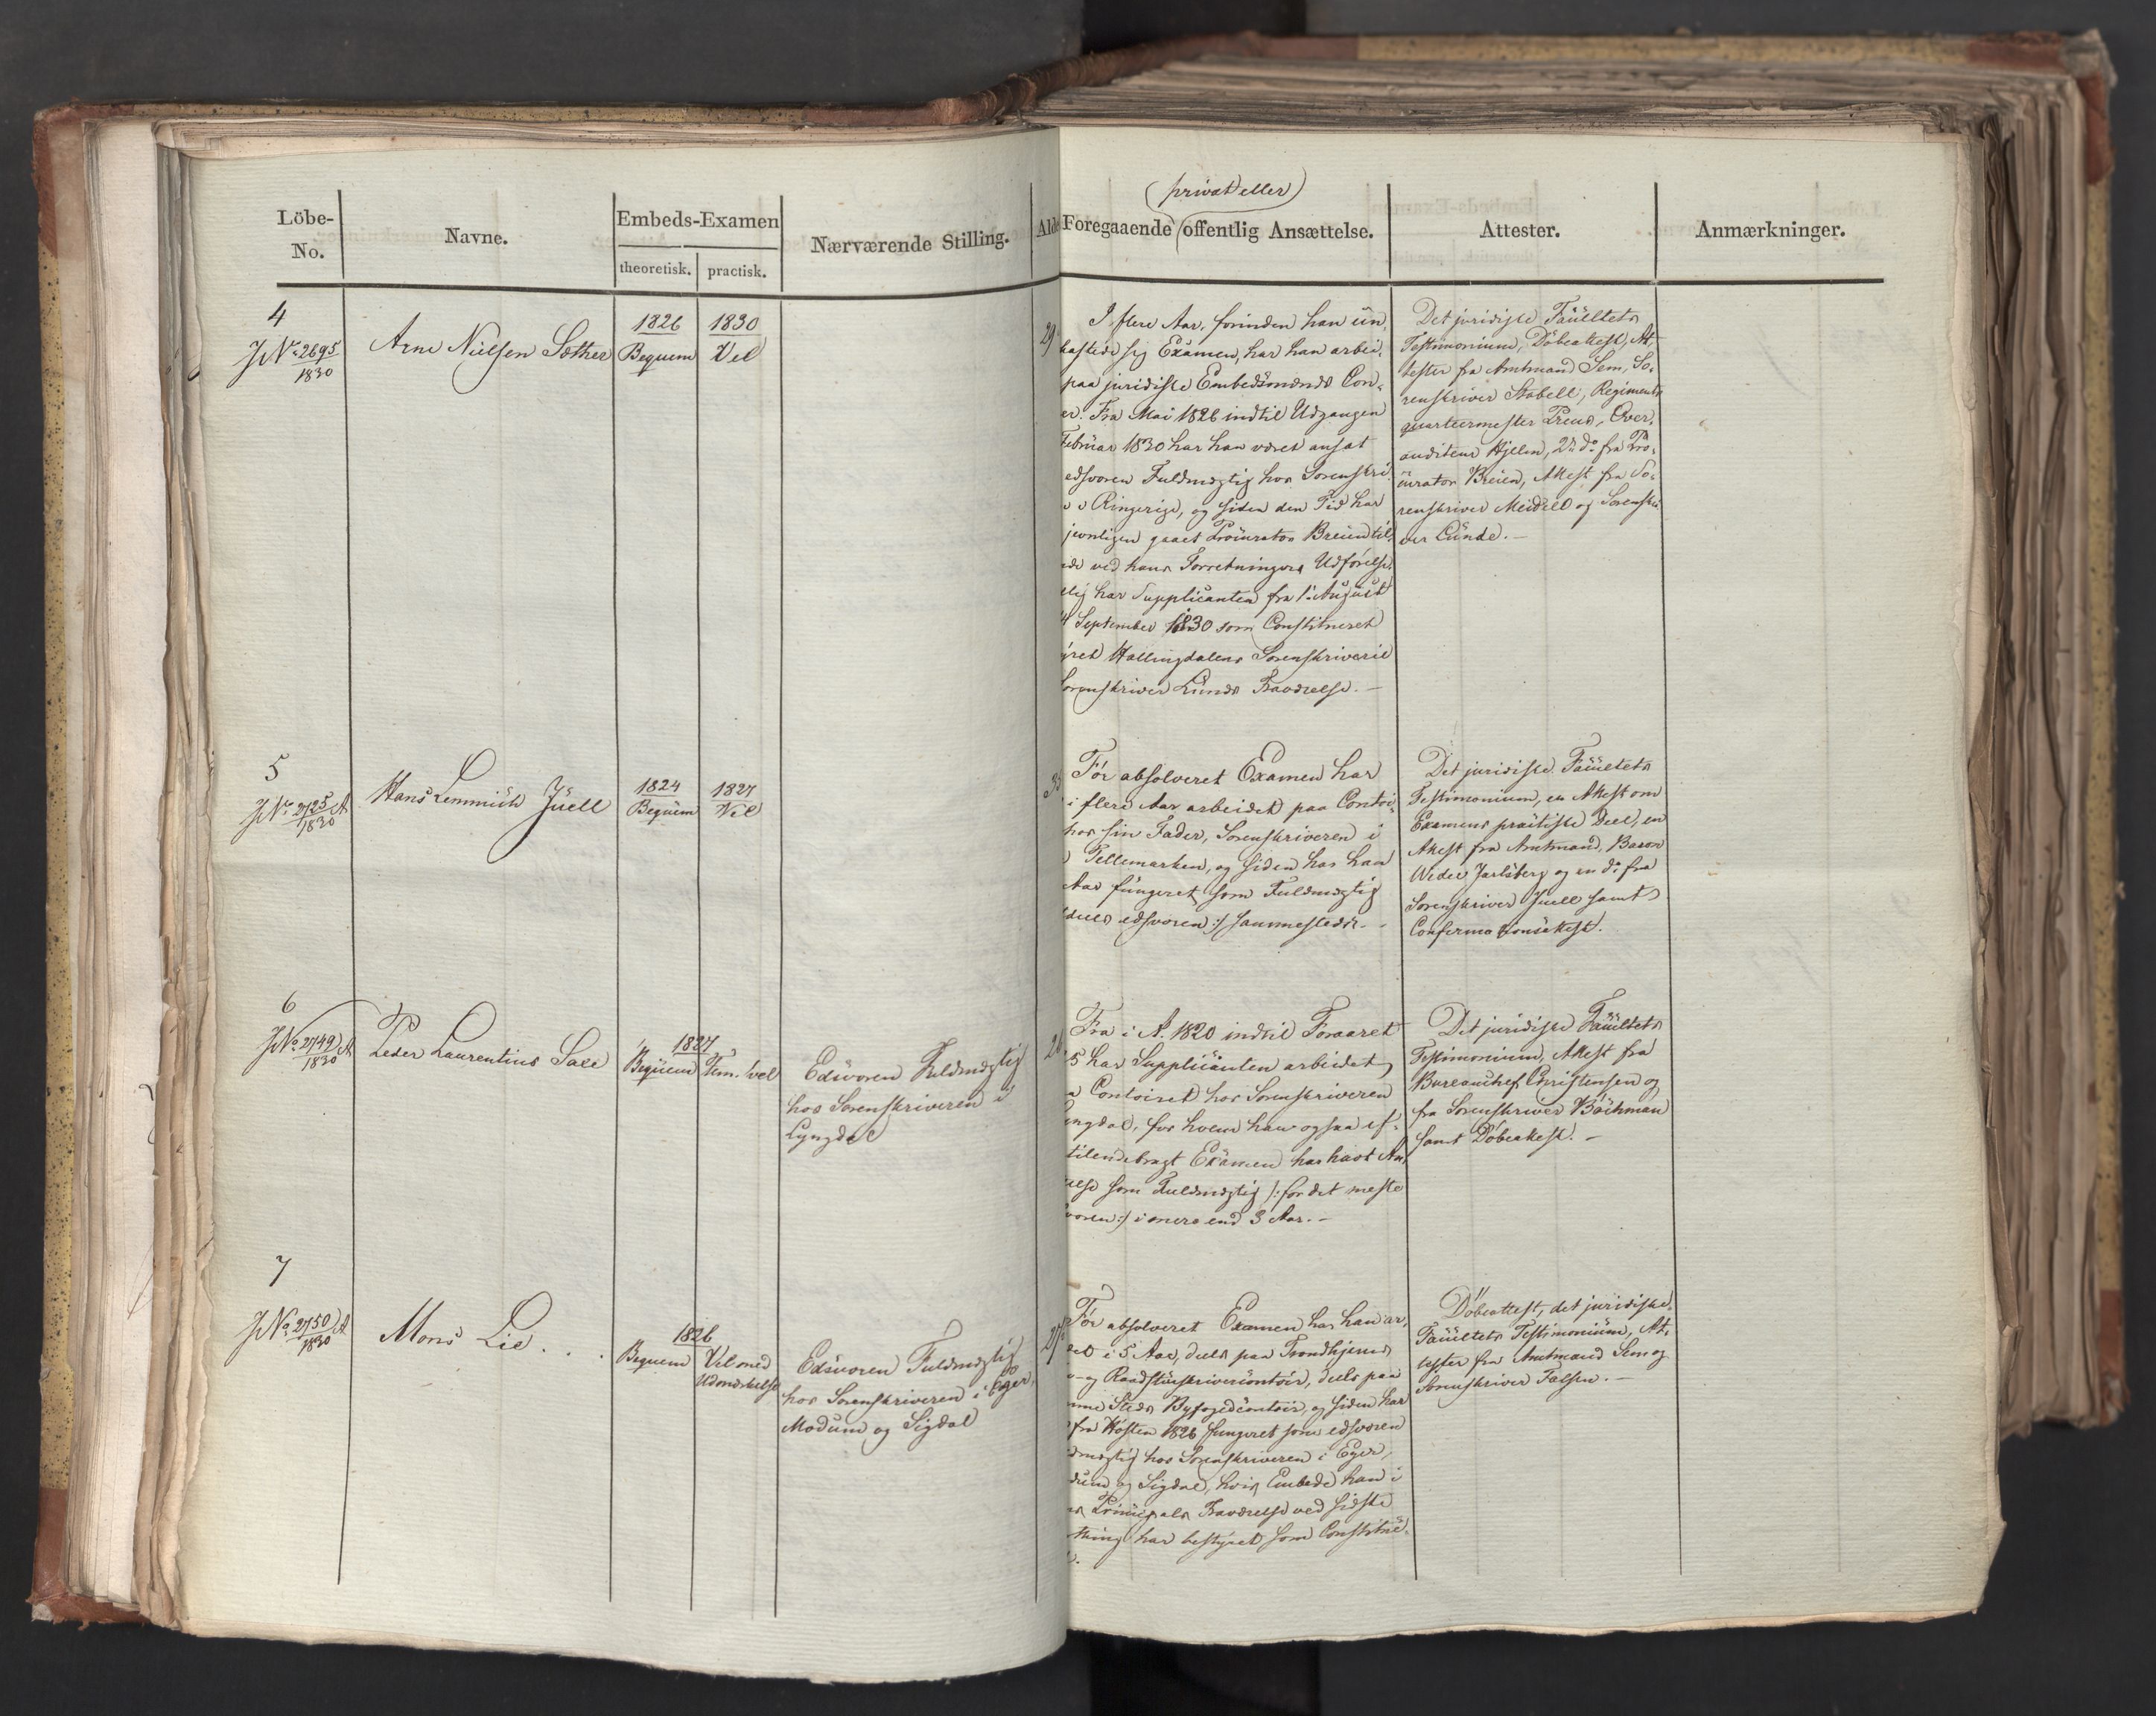 Löbe-
No.
Navne.
Embeds-Examen
theoretisk.
practisk.
Nærværende Stilling.
Alde
(privat eller)
Foregaaende offentlig Ansættelse.
Attester.
Anmærkninger.
4
JNo 2695
1830
Arne Nielsen Sæther
1826
Beqvem
1830
Vel
29
I flere Aar, forinden han un-
kastede sig Examen, har han arbei-
paa juridiske Embedsmænds Con-
er. Fra Mai 1826 indtil Udgangen
Februar 1830 har han været ansat
edsvoren Fuldmægtig hos Sorenskri-
Ringerige, og siden den Tid har
jevnligen gaaet Procurator Breien til
ved hans Forretningers Udförelse.
har Supplicanten fra 1 August
September 1830 som Constitueret
Hallingdalens Sorenskriverie
Sorenskriver Lunds Fraværelse. –
Det juridiske Facultets
Testimonium, Döbeattest, At-
tester fra Amtmand Sem, So-
renskriver Stabell, Regiments-
quarteermester Preus, Over-
auditeur Hjelm, 2de do fra Pro-
curator Breien, Attest fra So-
renskriver Meidell og Sorenskri-
ver Lunde. –
5
JNo 2725 A
1830
Hans Lemmich Juell
1824
Beqvem
1827
Vel
För absolveret Examen har
i flere Aar arbeidet paa Contoi-
hos sin Fader, Sorenskriveren i
Tellemarken, og siden har han
Aar fungeret som Fuldmægtig
deels edsvoren :/ sammesteds. –
Det juridiske Facultets
Testimonium, en Attest om
Examens practiske Deel, en
Attest fra Amtmand, Baron
Wedel Jarlsberg og en do fra
Sorenskriver Juell samt
Confirmationsattest.
6
JNo 2749 A
1830
Peder Laurentius Sale
1827
Beqvem
Tem. vel
Edsvoren Fuldmægtig
hos Sorenskriveren i
Lyngdal
Fra i A. 1820 indtil Foraaret
5 har Supplicanten arbeidet
Contoiret hos Sorenskriveren
ngdal, for hvem han ogsaa ef-
tilendebragt Examen har havt An-
else som Fuldmægtig /: for det meste
voren :/ i mere end 3 Aar. –
Det juridiske Facultets
Testimonium, Attest fra
Bureauchef Christensen og
fra Sorenskriver Bachman
samt Döbeattest. –
7
JNo 2750 A
1830
Mons Lie . .
1826
Beqvem
Vel med
Udmærkelse
Edsvoren Fuldmægtig
hos Sorenskriveren i Eger,
Modum og Sigdal
27
För absolveret Examen har han ar-
det i 5 Aar, deels paa Trondhjems
- og Raadstueskrivercontoir, deels paa
mme Steds Byfogedcontoir, og siden har
fra Hösten 1826 fungeret som edsvoren
dmægtig hos Sorenskriveren i Eger,
dum og Sigdal, hvis Embede han i
Principals Fraværelse ved sidste
thing har bestyret som Constitue-
Döbeattest, det juridiske
Facultets Testimonium, At-
tester fra Amtmand Sem og
Sorenskriver Falsen. –